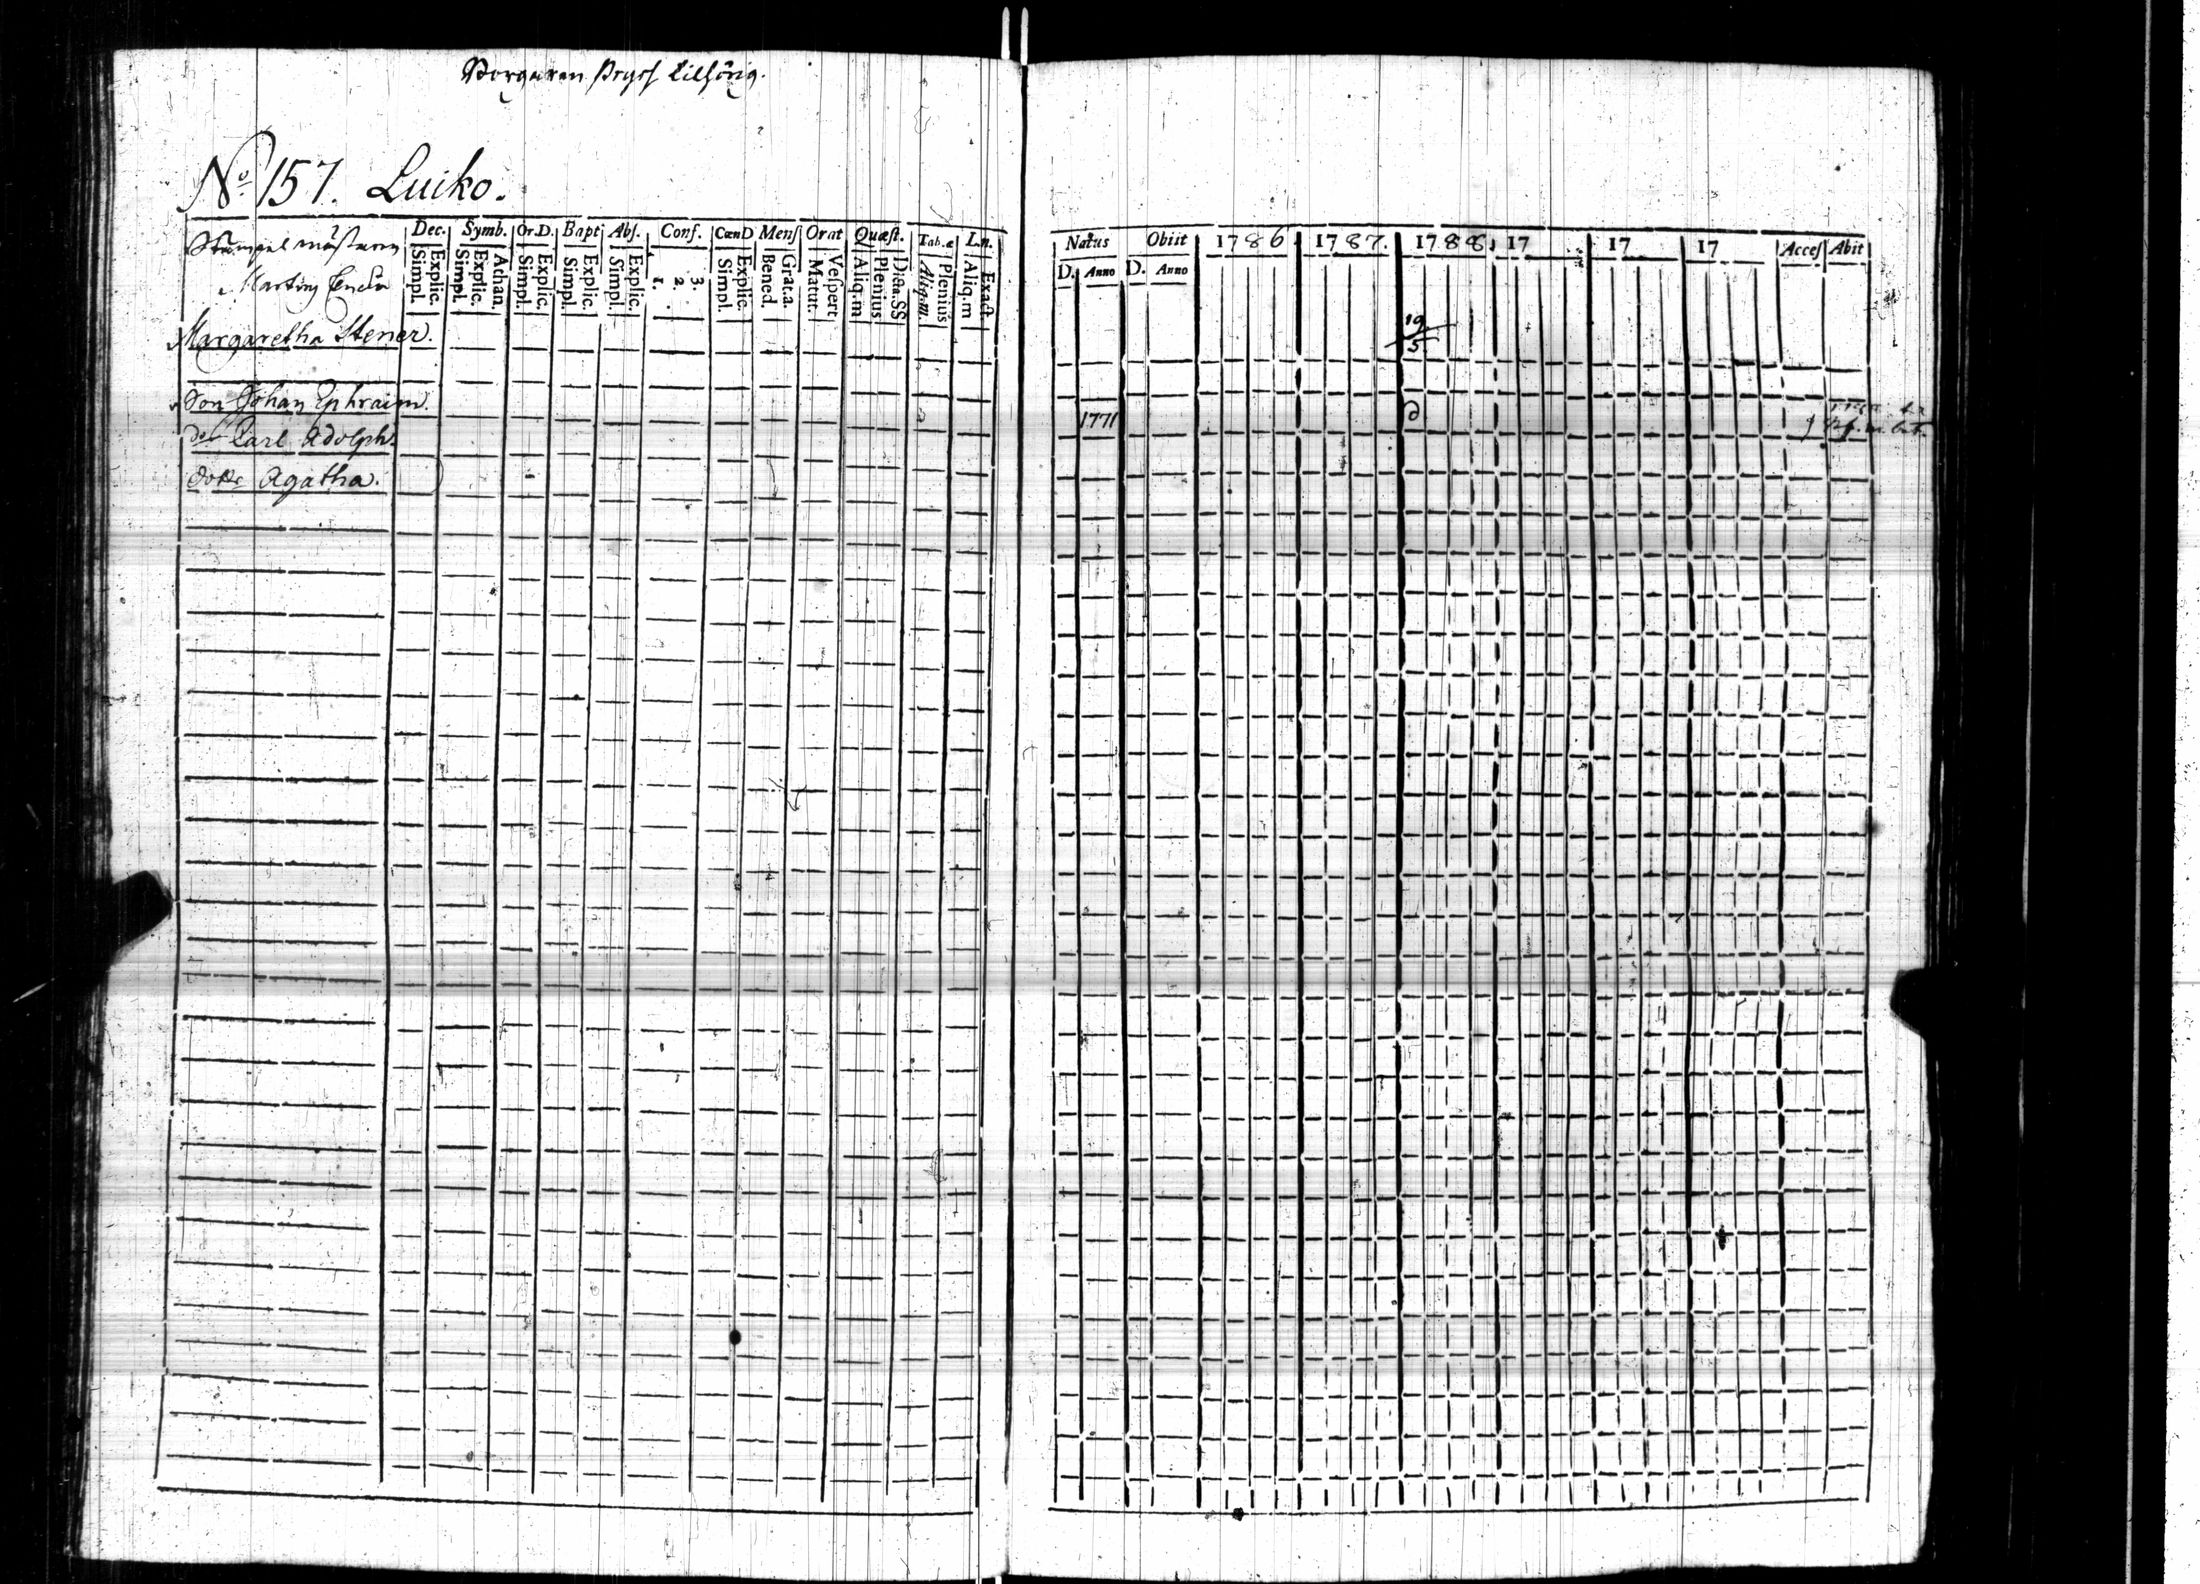 Borgaren tilhörig.
No 157. Luiko.
Dec. Symb. Or.D. Bapt Abs. Conf. CœnD Mens Orat Quæst. Tab.æ L.n.
Simpl. Explic. Simpl. Explic. Athan. Simpl. Explic. Simpl. Explic. Simpl. Explic. 1. 2. 3. Simpl. Explic. Bened. Grat.a. Matut. Vespert Aliq.m Plenius Dicta.SS Aliq.m. Plenius Aliq.m Exact.
Stämpel mästaren
Martin
Margaretha Stener.
Son Johan Ephraim.
do Carl Adolph.
dottr Agatha.
Natus Obiit 1786. 1787. 1788. 17 17 17 Acces Abit
D. Anno D. Anno
19
5.
1771 d